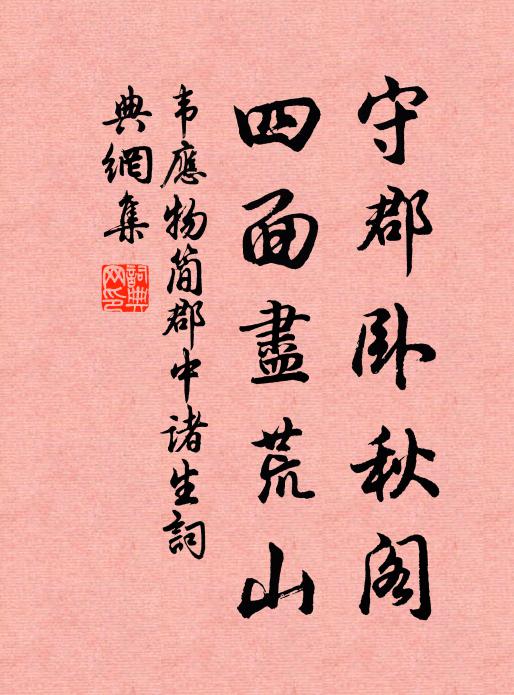 守郡卧秋阁
四面盡荒山
韦應物简郡中诸生詞
典網集
詞典網印